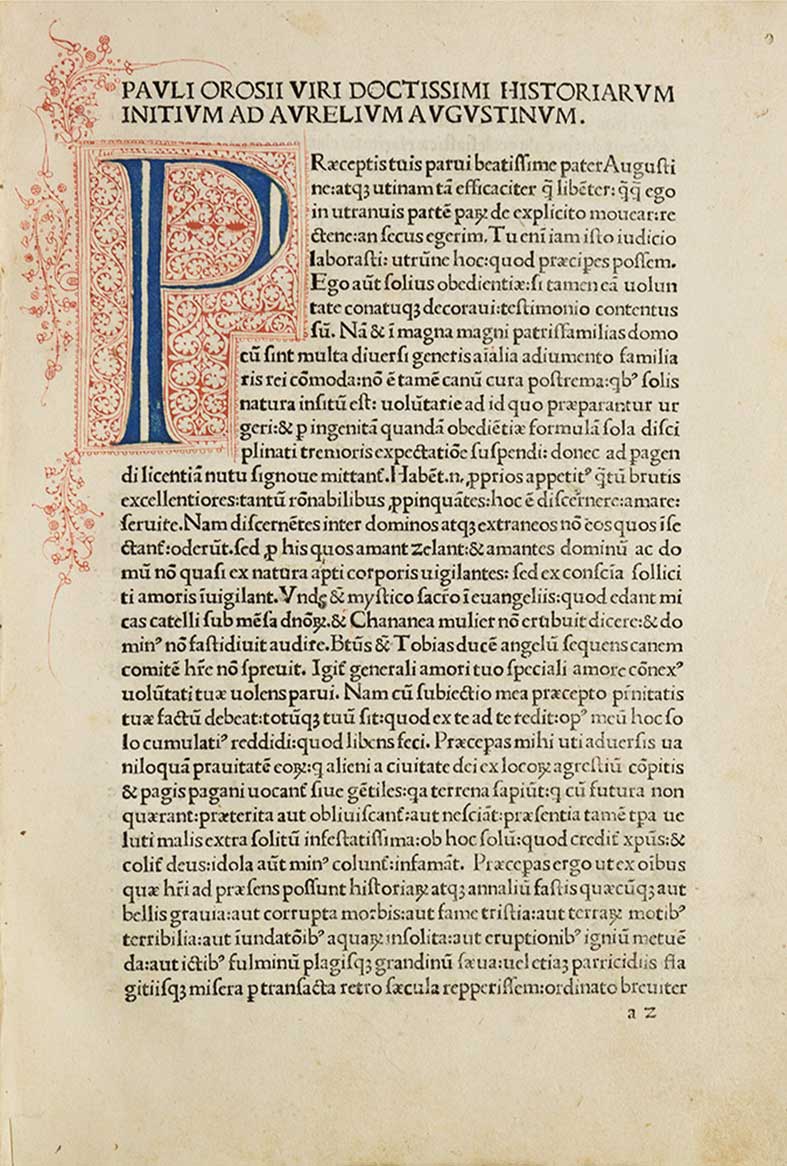 PAVLI OROSII VIRI DOCTISSIMI HISTORIARVM
INITIVM AD AVRELIVM AVGVSTINVM.
PRæceptis tuis parui beatissime pater Augusti
ne:atqꝫ utinam tā efficaciter q̄ libēter: q̄q̄ ego
in utranuis partē paꝝ de explicito mouear:re
ctene:an secus egerim. Tu eni iam isto iudicio
laborasti: utrūne hoc:quod præcipes possem.
Ego aūt solius obedientiæ:si tamen eā uolun
tate conatuqꝫ decoraui:testimonio contentus
sū. Nā & ī magna magni patrissamilias domo
cū sint multa diuersi generis aīalia adiumento familia
ris rei cōmoda:nō ē tamē canū cura postrema:qbꝰ solis
natura insitū est: uolūtarie ad id quo præparantur ur
geri:& p ingenitā quandā obediētiæ formulā sola disci
plinati tremoris expectatiōe suspendi: donec ad pagen
di licentiā nutu signoue mittant̄. Habēt.n. ꝓprios appetitꝰ q̄tū brutis
excellentiores:tantū rōnabilibus ꝓpinquātes:hoc ē discernere:amare:
seruire. Nam discernētes inter dominos atqꝫ extraneos nō eos quos īse
ctant̄:oderūt.sed ꝓ his quos amant zelant:& amantes dominū ac do
mū nō quasi ex natura apti corporis uigilantes: sed ex consc̄ia sollici
ti amoris īuigilant. Vnde & mystico sacro ī euangeliis:quod edant mi
cas catelli sub mēsa dnōꝝ.& Chananea mulier nō erubuit dicere:& do
minꝰ nō fastidiuit audire. Btūs & Tobias ducē angelū sequens canem
comitē hr̄e nō spreuit. Igit̄ generali amori tuo speciali amore cōnexꝰ
uolūtati tuæ uolens parui. Nam cū subiectio mea præcepto pr̄nitatis
tuæ factū debeat:totūqꝫ tuū sit:quod ex te ad te redit:opꝰ meū hoc so
lo cumulatiꝰ reddidi:quod libens feci. Præcepas mihi uti aduersis ua
niloquā prauitatē eoꝝ:q alieni a ciuitate dei ex locoꝝ agrestiū cōpitis
& pagis pagani uocant̄ siue gētiles:qa terrena sapiūt:q cū futura non
quærant:præterita aut obliuiscant̄:aut nesciāt:præsentia tamē tpa ue
luti malis extra solitū infestatissima:ob hoc solū:quod credit̄ xpūs:&
colit̄ deus:idola aūt minꝰ colunt̄:infamāt. Præcepas ergo ut ex oībus
quæ hr̄i ad præsens possunt historiaꝝ atqꝫ annaliū fastis quæcūqꝫ aut
bellis grauia:aut corrupta morbis:aut fame tristia:aut terraꝝ motibꝰ
terribilia:aut īundatōibꝰ aquaꝝ insolita:aut eruptionibꝰ igniū metuē
da:aut ictibꝰ fulminū plagisqꝫ grandinū sæua:uel etiaꝫ parricidiis fla
gitiisqꝫ misera p transacta retro sæcula repperissem:ordinato breuiter
a z